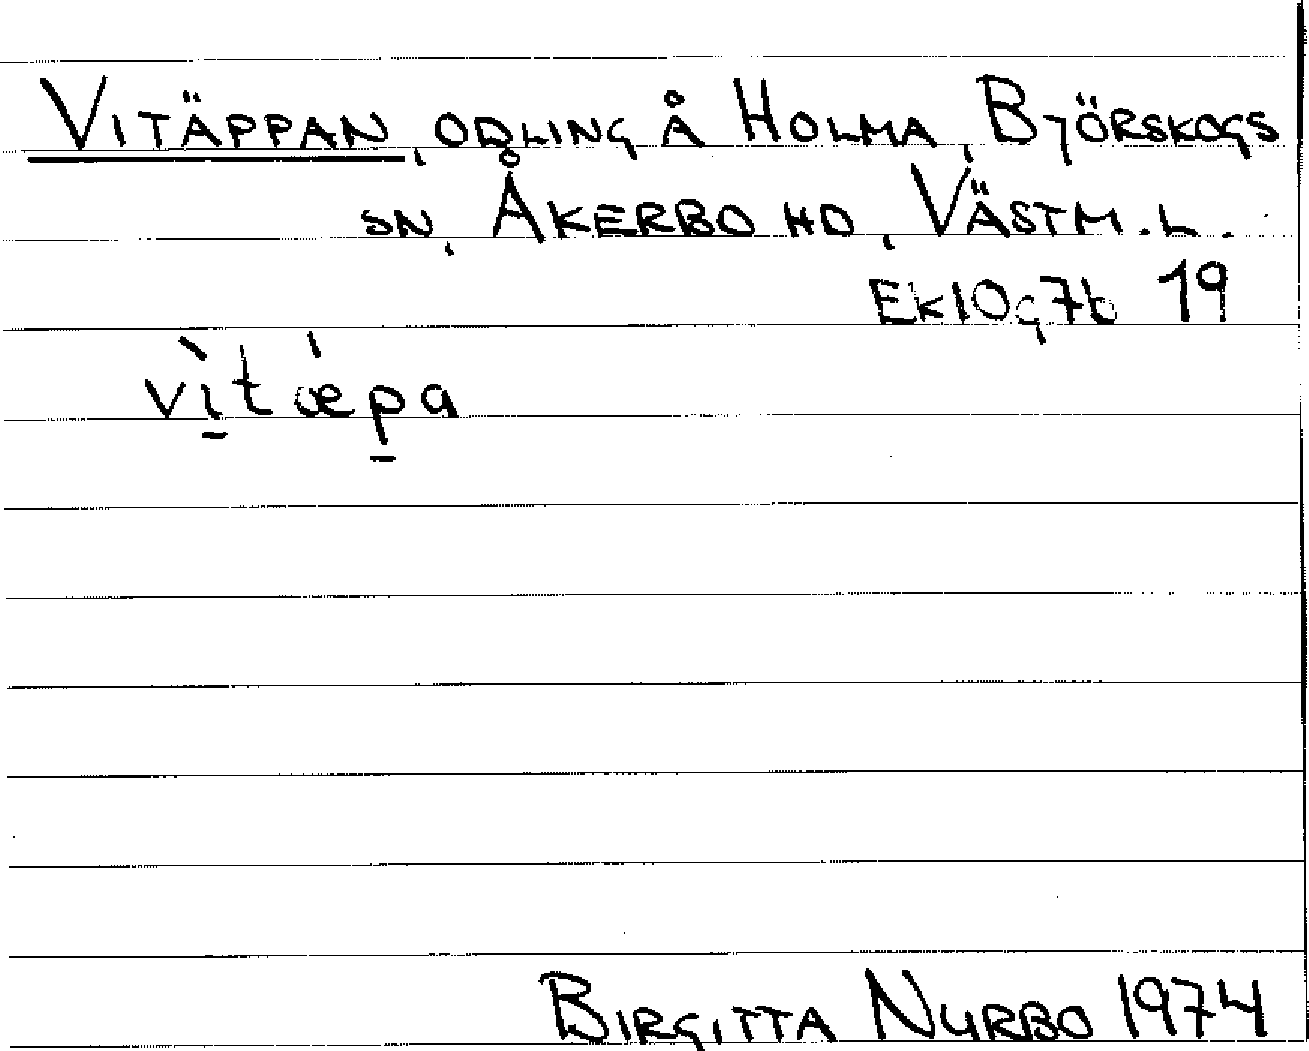 VITÄPPAN, ODLING Å HOLMA, BJÖRSKOGS
SN, ÅKERBO HD, VÄSTM. L.
Ek10g7b 19
vì̱tæ̍p̱a
BIRGITTA NYRBO 1974